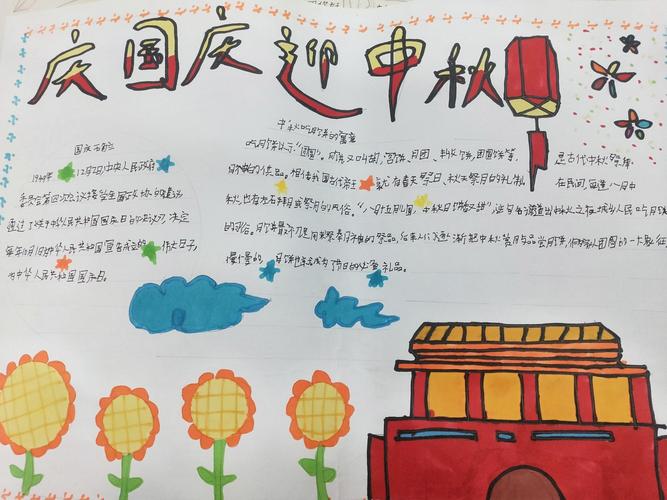 庆国庆迎中秋
国庆的由
1949年12月2日中央人民政府
委员会第四次会议接受全国政协的建议
通过了《关于中华人民共和国国庆日的决议》,决定
每年10月1日即中华人民共和国宣告成立的伟大日子,
为中华人民共和国国庆日。
中秋吃月饼的寓意
吃月饼以示“团圆”。月饼又叫胡饼、宫饼、月团、丰收饼、团圆饼等, 是古代中秋祭拜
月神的供品。相传我国古代帝王就有春天祭日、秋天祭月的礼制, 在民间,每逢八月中
秋,也有左右拜月或祭月的风俗。“八月十五月儿圆,中秋月饼香又甜”,这句名谚道出中秋之夜城乡人民吃月饼
的习俗。月饼最初是用来祭奉月神的祭品,后来人们逐渐把中秋赏月与品尝月饼,作为家人团圆的一大象征
慢慢的,月饼也就成为了节日的必备礼品。